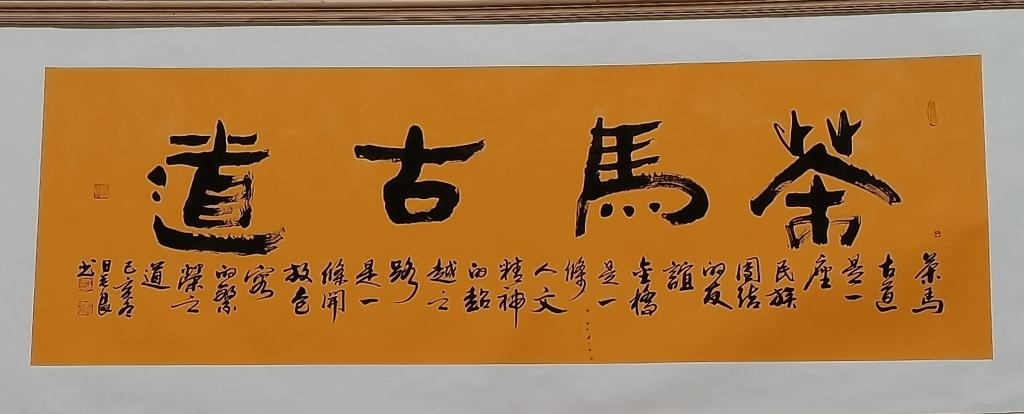 茶馬古道
茶馬
古道
是一
座
民族
團結
的友
誼
金橋
是一
條
人文
精神
的超
越之
路
是一
條開
放包
容
的繁
榮之
道
己亥冬
日良
书